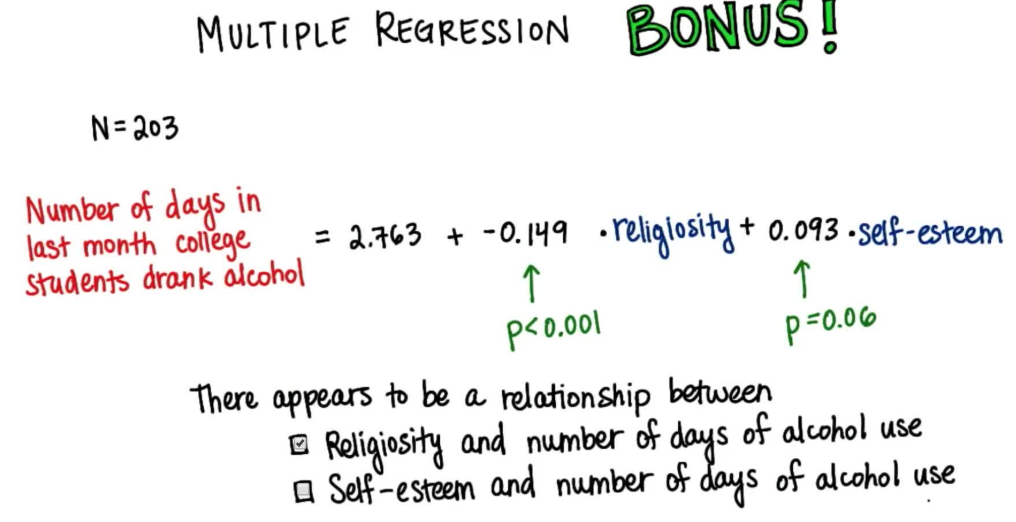 MULTIPLE REGRESSION BONUS!
N=203
Number of days in
last month college
students drank alcohol
= 2.763 + -0.149 · religiosity + 0.093 · self-esteem
p<0.001
p=0.06
There appears to be a relationship between
Religiosity and number of days of alcohol use
Self-esteem and number of days of alcohol use